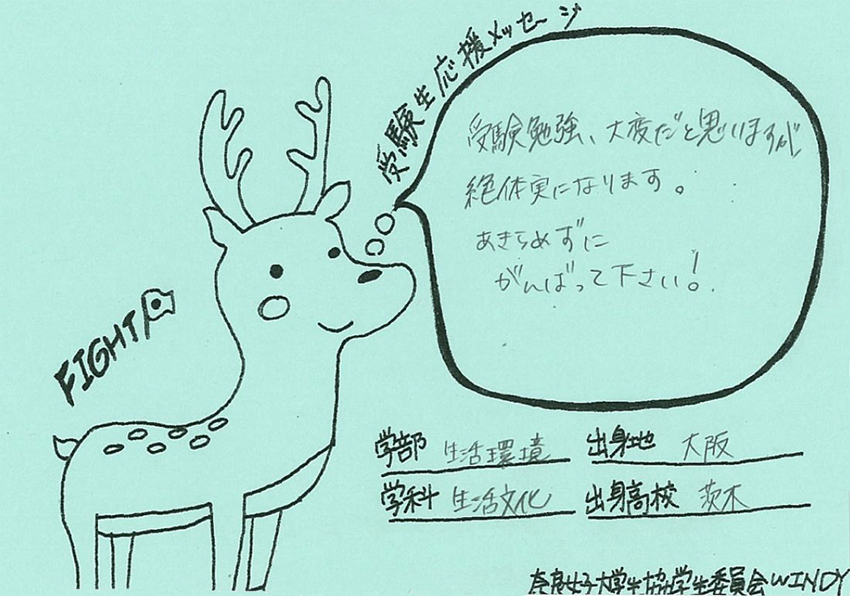 受験生応援メッセージ
受験勉強、大変だと思いますが、
絶体実になります。
あきらめずに
がんばって下さい!
FIGHT
学部 生活環境 出身地 大阪
学科 生活文化 出身高校 茨木
奈良女子大学生協学生委員会WINDY